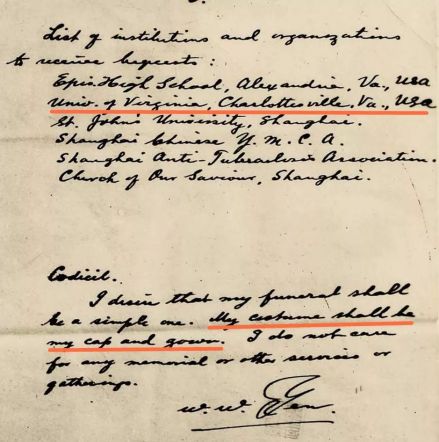 List of institutions and organizations
to receive bequests:
Epis. High School, Alexandria, Va., USA
Univ. of Virginia, Charlottesville, Va., USA
St. John's University, Shanghai.
Shanghai Chinese Y. M. C. A.
Shanghai Anti-Tuberculosis Association.
Church of Our Saviour, Shanghai.
Codicil.
I desire that my funeral shall
be a simple one. My costume shall be
my cap and gown. I do not care
for any memorial or other services or
gatherings.
W. W. Yen.